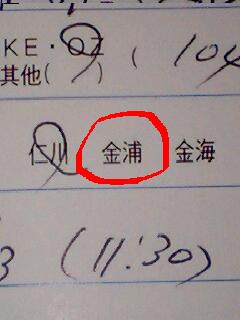 KE・OZ ( 104
其他( )
仁川 金浦 金海
3 (11:30)